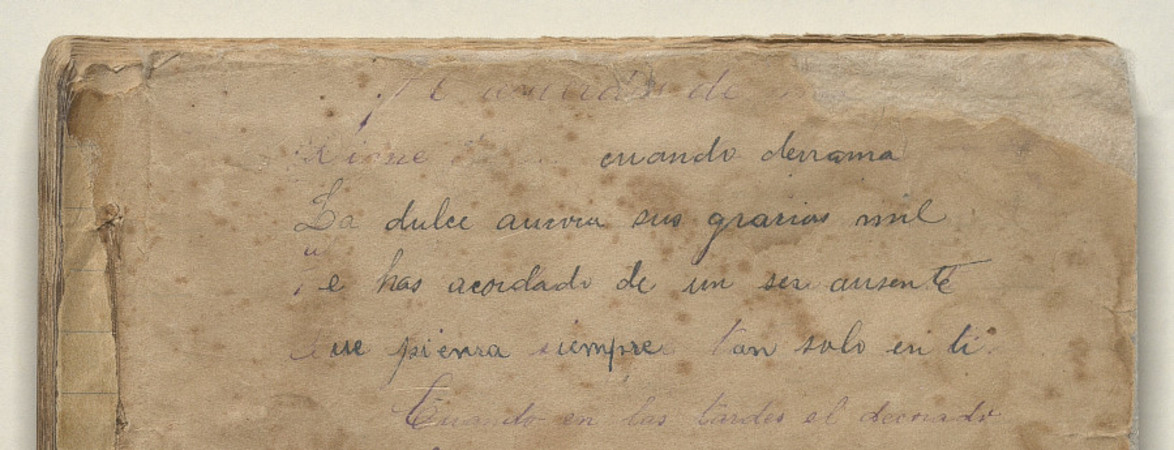 de
cuando derrama
La dulce aurora sus gracias mil
Te has acordado de un ser ausente
Que piensa siempre tan solo en ti.
Cuando en las tardes el decorado